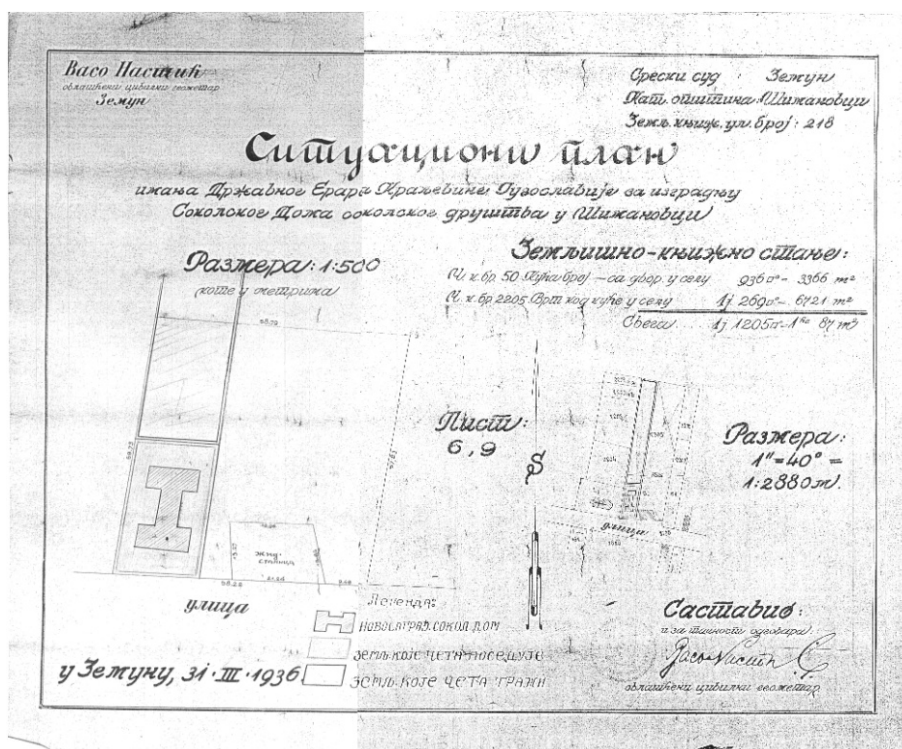 Васо Настић
облашћени цивилни геометар
Земун
Срески суд Земун
Кат. општина: Шимановци
Земљ. књиж. ул. број: 218
Ситуациони план
имања Државног Ерара Краљевине Југославије за изградњу
Соколског Дома соколског друштва у Шимановци
Размера: 1:500
коте у метрима
Земљишно-књижно стање:
Ч. к. бр. 50 Кућа број – са двор. у селу 936□° – 3366 m²
Ч. к. бр. 2205 Врт код куће у селу 1ј 269□° – 6721 m²
Свега 1ј 1205□° – 1 ha 87 m²
Лист:
6, 9
S
Размера:
1" = 40° =
1:2880 м.
улица
жнд.
станица
улица
Легенда:
НОВОСАГРАЂ. СОКОЛ. ДОМ
ЗЕМЉ. КОЈЕ ЧЕТА ПОСЕДУЈЕ
ЗЕМЉ. КОЈЕ ЧЕТА ТРАЖИ
у Земуну, 31. III. 1936.
Саставио:
и за тачност одговара:
Васо Настић
облашћени цивилни геометар